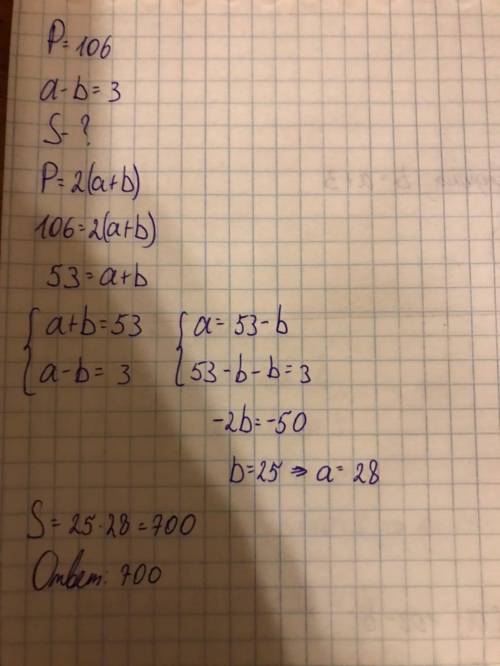 P=106
a-b=3
S-?
P=2(a+b)
106=2(a+b)
53=a+b
{a+b=53 {a=53-b
a-b=3 53-b-b=3
-2b=-50
b=25 => a=28
S=25·28=700
Ответ: 700